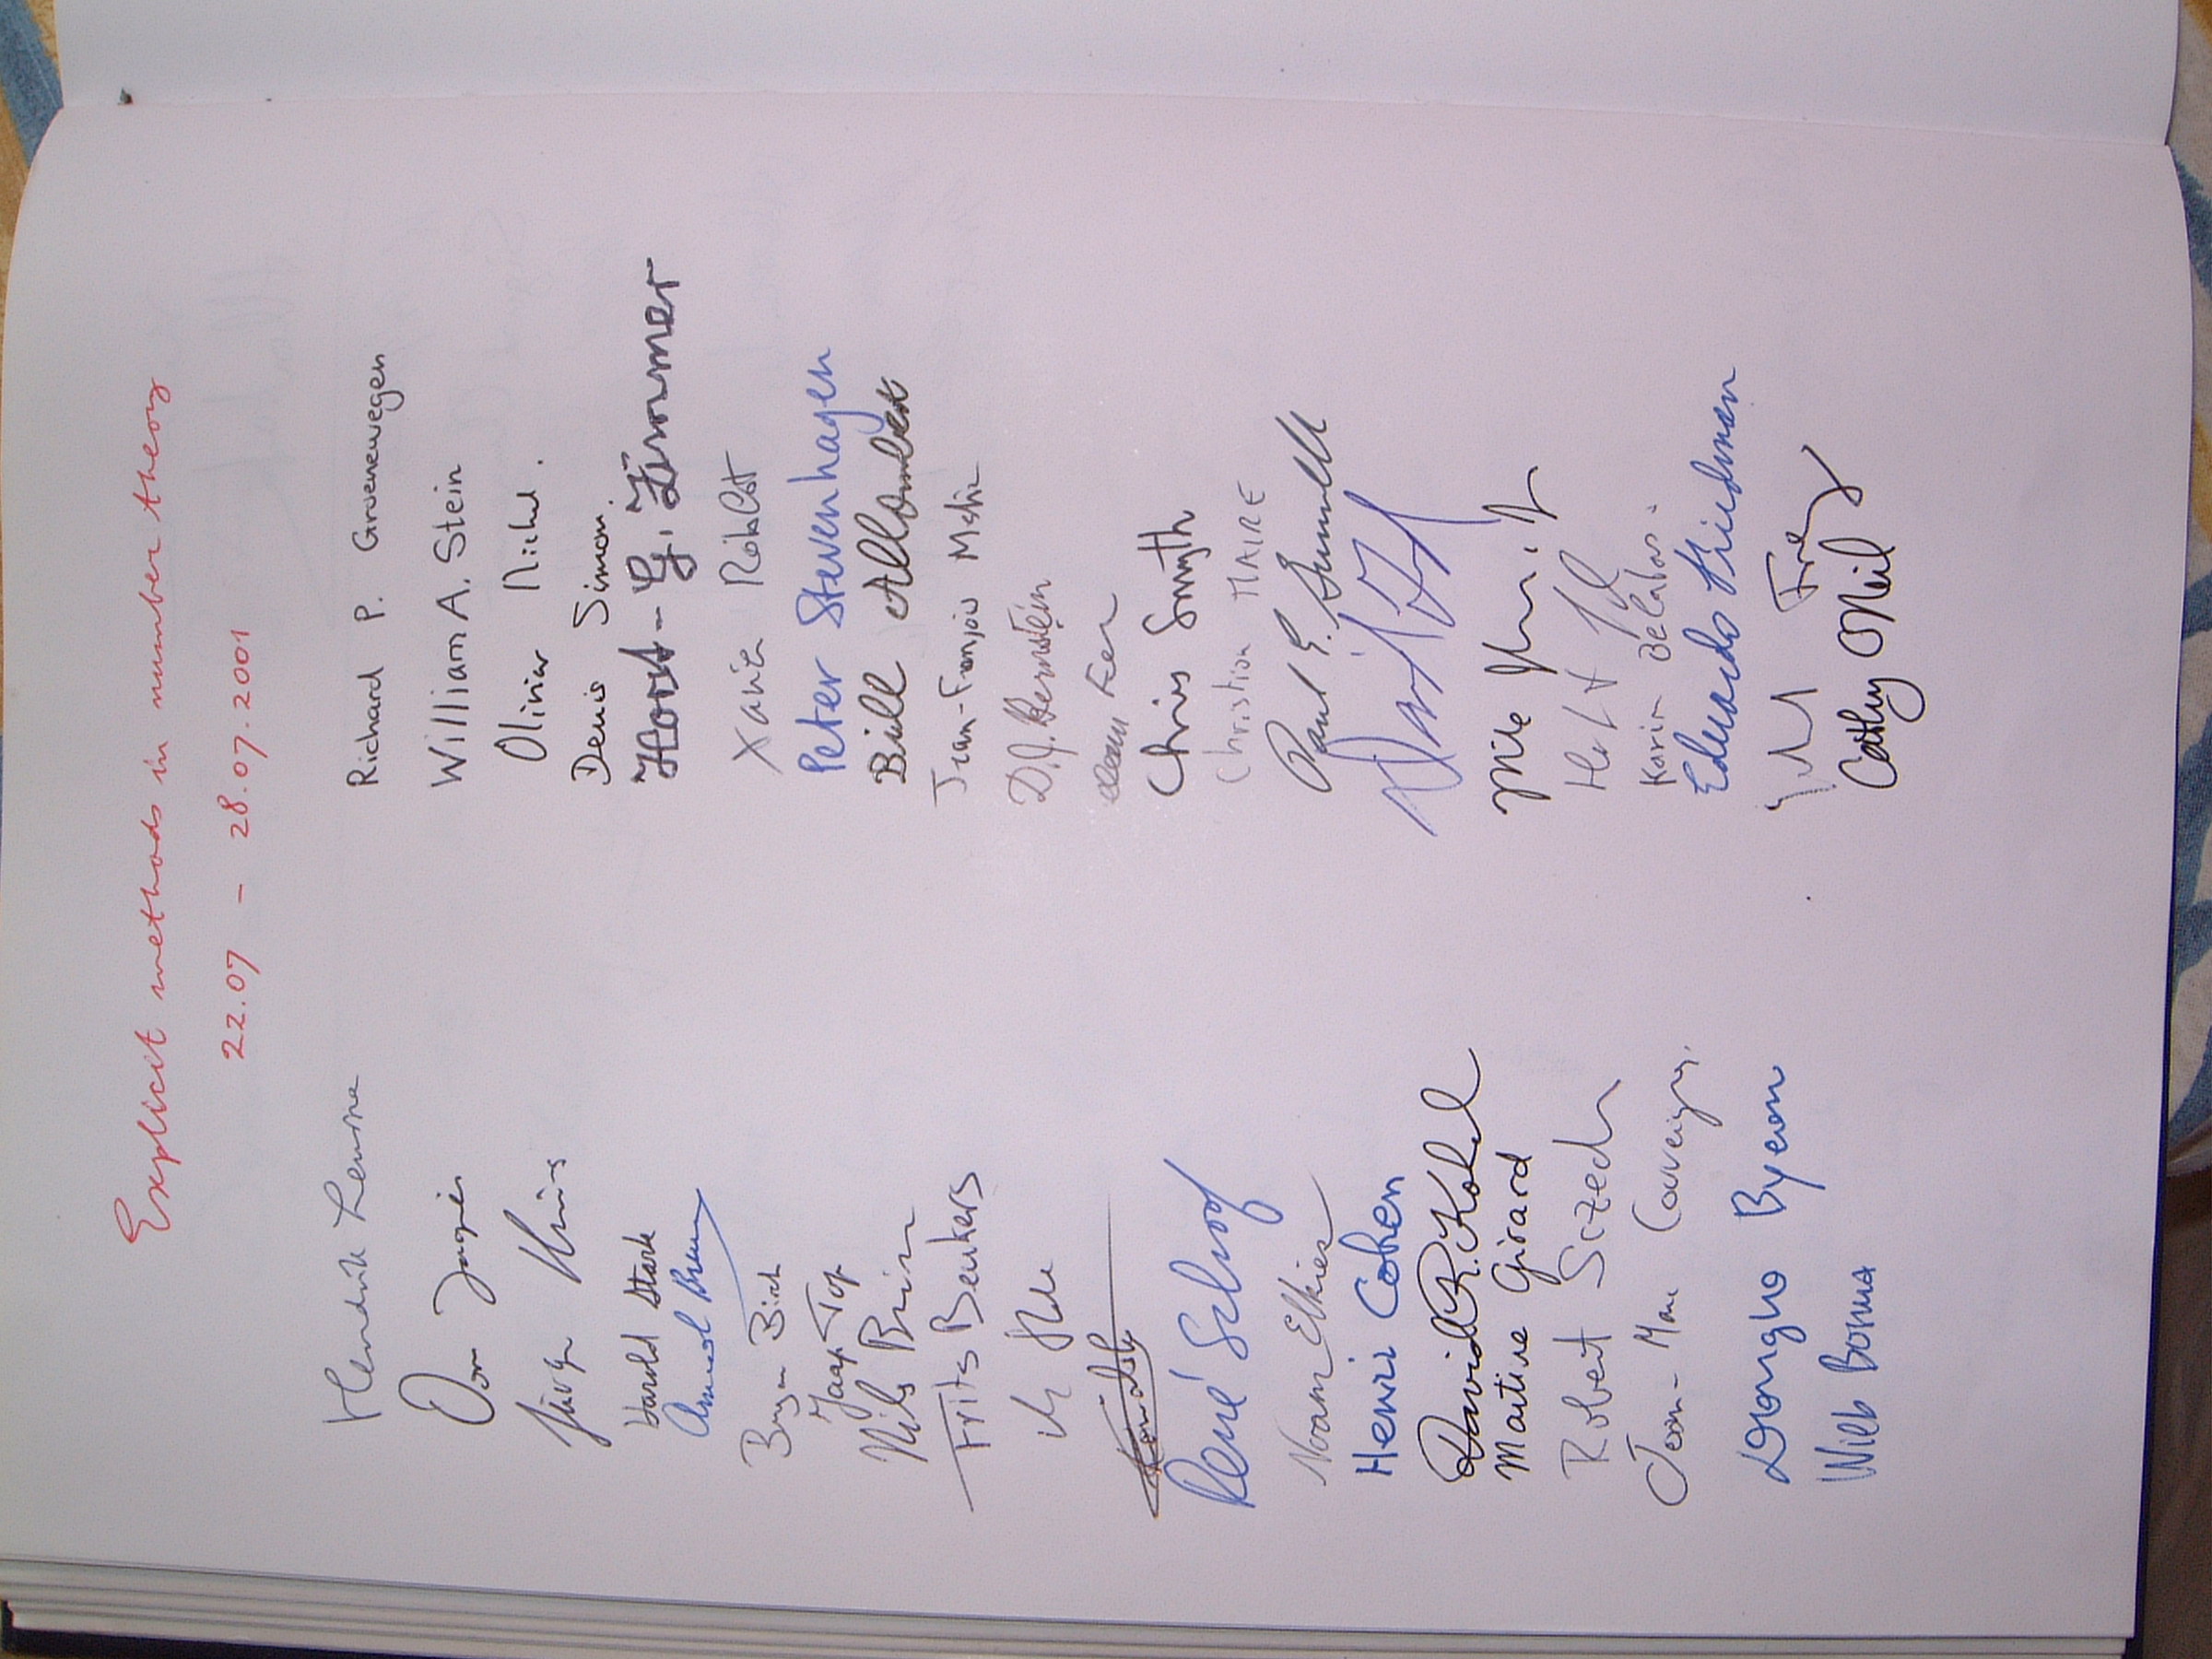 Explicit methods in number theory
22.07 - 28.07.2001
Hendrik Lenstra
Don Zagier
Jürgen Klüners
Harold Stark
Armand Brumer
Bryan Birch
Jaap Top
Nils Bruin
Frits Beukers
René Schoof
Noam Elkies
Henri Cohen
David R. Kohel
Martine Girard
Robert Sczech
Jean-Marc Couveignes
Dongho Byeon
Wieb Bosma
Richard P. Groenewegen
William A. Stein
Olivier
Denis Simon.
Horst-G. Zimmer
Xavier Roblot
Peter Stevenhagen
Bill Allombert
Jean-François Mestre
D.J. Bernstein
Chris Smyth
Christian MAIRE
Paul E. Gunnells
Karim Belabas.
Eduardo Friedman
Frey
Cathy O'Neil